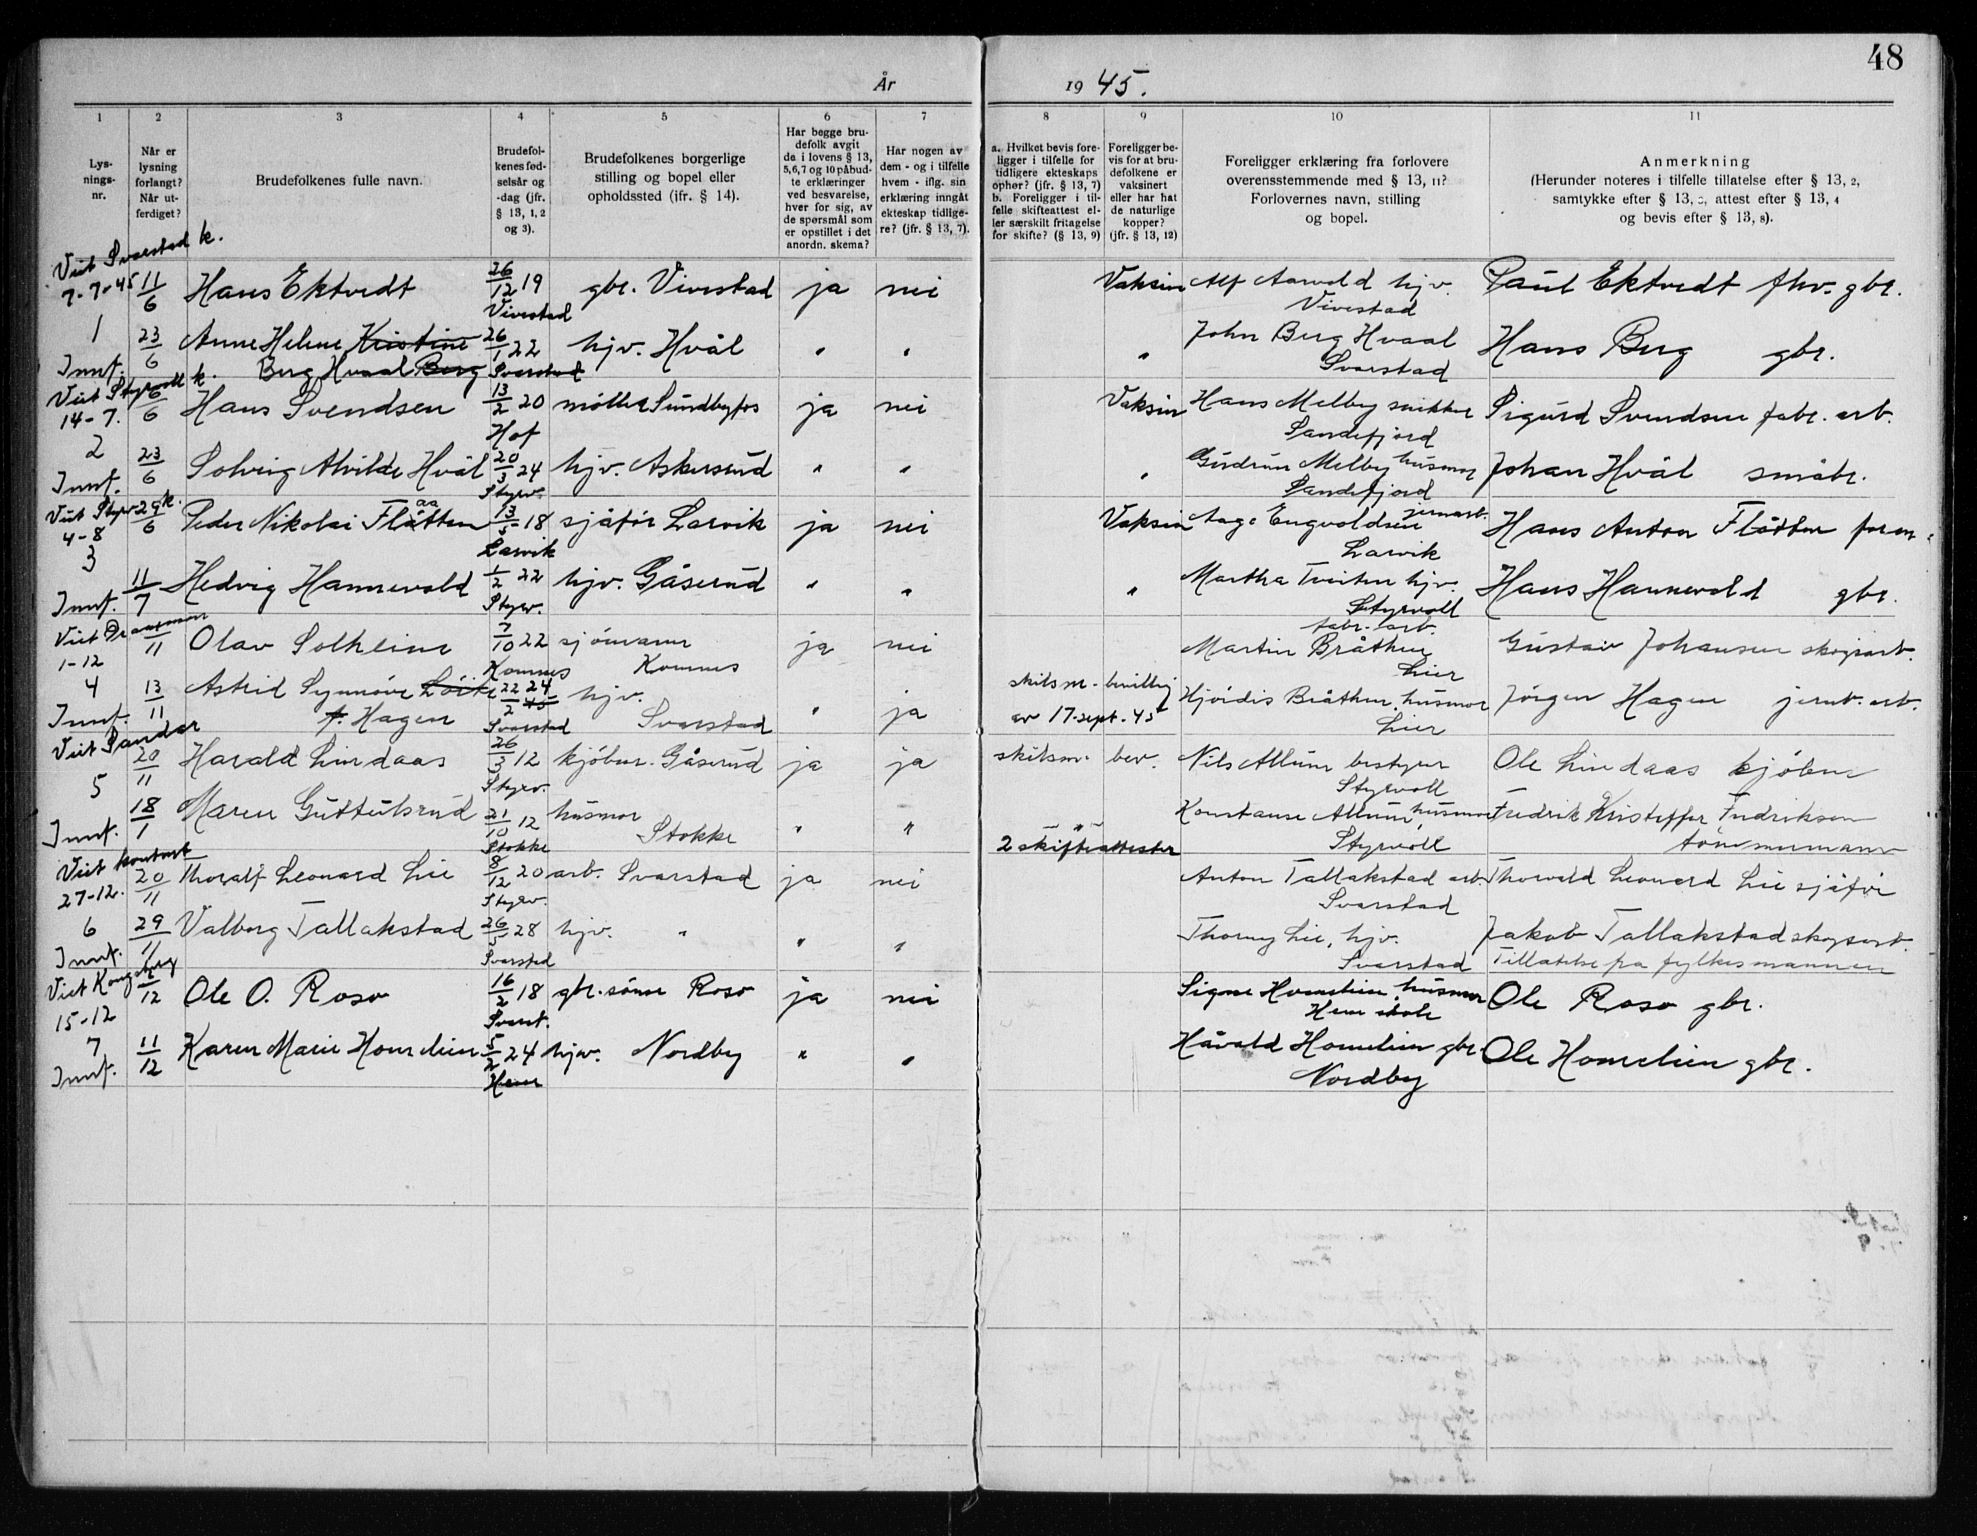 48
År 1945.
1 2 3 4 5 6 7 8 9 10 11
Lys-
nings-
nr.
Når er
lysning
forlangt?
Når ut-
ferdiget?
Brudefolkenes fulle navn.
Brudefol-
kenes fød-
selsår og
-dag (jfr.
§ 13, 1, 2
og 3).
Brudefolkenes borgerlige
stilling og bopel eller
opholdssted (jfr. § 14).
Har begge bru-
defolk avgit
da i lovens § 13,
5,6,7 og 10 påbud-
te erklæringer
ved besvarelse,
hver for sig, av
de spørsmål som
er opstillet i det
anordn. skema?
Har nogen av
dem - og i tilfelle
hvem - iflg. sin
erklæring inngåt
ekteskap tidlige-
re? (jfr. § 13, 7).
a. Hvilket bevis fore-
ligger i tilfelle for
tidligere ekteskaps
ophør? (jfr. § 13, 7)
b. Foreligger i til-
felle skifteattest el-
ler særskilt fritagelse
for skifte? (§ 13, 9)
Foreligger be-
vis for at bru-
defolkene er
vaksinert
eller har hat
de naturlige
kopper?
(jfr. § 13, 12)
Foreligger erklæring fra forlovere
overensstemmende med § 13, 11?
Forlovernes navn, stilling
og bopel.
Anmerkning
(Herunder noteres i tilfelle tillatelse efter § 13, 2,
samtykke efter § 13, 3, attest efter § 13, 4
og bevis efter § 13, 8).
Viet Svarstad k.
7-7-45 11/6 Hans Ektvedt 26/12 19 gbr. Vivestad ja nei Vaksin Alf Aarvold hjv. Paul Ektvedt fhv. gbr.
Vivestad Vivestad
1 23/6 Anne Helene Kristine 26/1 22 hjv. Hvål " " " John Berg Hvaal Hans Berg gbr.
Innf. Berg Hvaal Berg Svarstad Svarstad
Viet Styrvoll k.
14-7. 6/6 Hans Svendsen 13/2 20 møller Sundbyfos ja nei Vaksin Hans Melby snikker Sigurd Svendsen fabr. arb.
Hof Sandefjord
2 23/6 Solveig Alvilde Hvål 20/3 24 hjv. Askersrud " " " Gudrun Melby husmor Johan Hvål småbr.
Innf. Styrv. Sandefjord
Viet Styrv. k.
4-8 29/6 Peder Nikolai Flåtten aa 13/5 18 sjåfør Larvik ja nei Vaksin Aage Engvoldsen jernarb. Hans Anton Flåtten
Larvik Larvik
3 11/7 Hedvig Hannevold 1/2 22 hjv. Gåserud " " " Martha Tveiten hjv. Hans Hannevold gbr.
Innf. Styrv. Styrvoll
Viet Drammen
1-12 /11 Olav Solheim 7/10 22 sjömann ja nei Martin Bråthen fabr. arb. Gustav Johansen skogsarb.
Komnes Komnes Lier
4 13/11 Astrid Synnöve 22/2 24 45 hjv. " ja skilsm. bevillig Hjördis Bråthen, husmor Jörgen Hagen jernb. arb.
Innf. f. Hagen Svarstad Svarstad av 17. sept. 45 Lier
Viet Sandar
20/11 Harald Lindaas 26/3 12 kjöbm. Gåserud ja ja skilsm. bev. Nils Allum bestyrer Ole Lindaas kjöbm
Styrv. Styrvoll
5 18/1 Maren Guttulsrud 21/10 12 husmor " " " Konstanse Allum, husmor Fredrik Kristoffer Fredriksen
Innf. Stokke Stokke 2 skifteattester Styrvoll tömmermann
Viet kontort
27-12. 20/11 Thoralf Leonard Lie 8/12 20 arb. Svarstad ja nei Anton Tallakstad arb. Thorvald Leonard Lie sjåför
Styrv. Svarstad
6 29/11 Valborg Tallakstad 26/5 28 hjv. " " " Thorny Lie, hjv. Jakob Tallakstad skogsarb.
Innf. Svarstad Svarstad Tillatelse fra fylkesmannen
Viet Kongsberg
15-12 /12 Ole O. Roso 16/2 18 gbr. sönn Roso ja nei Signe Homelien, husmor Ole Roso gbr.
Svarst. Hem skole
7 11/12 Karen Marie Homelien 5/2 24 hjv. Nordby " " Håvald Homelien gbr. Ole Homelien gbr.
Innf. Hem Nordby